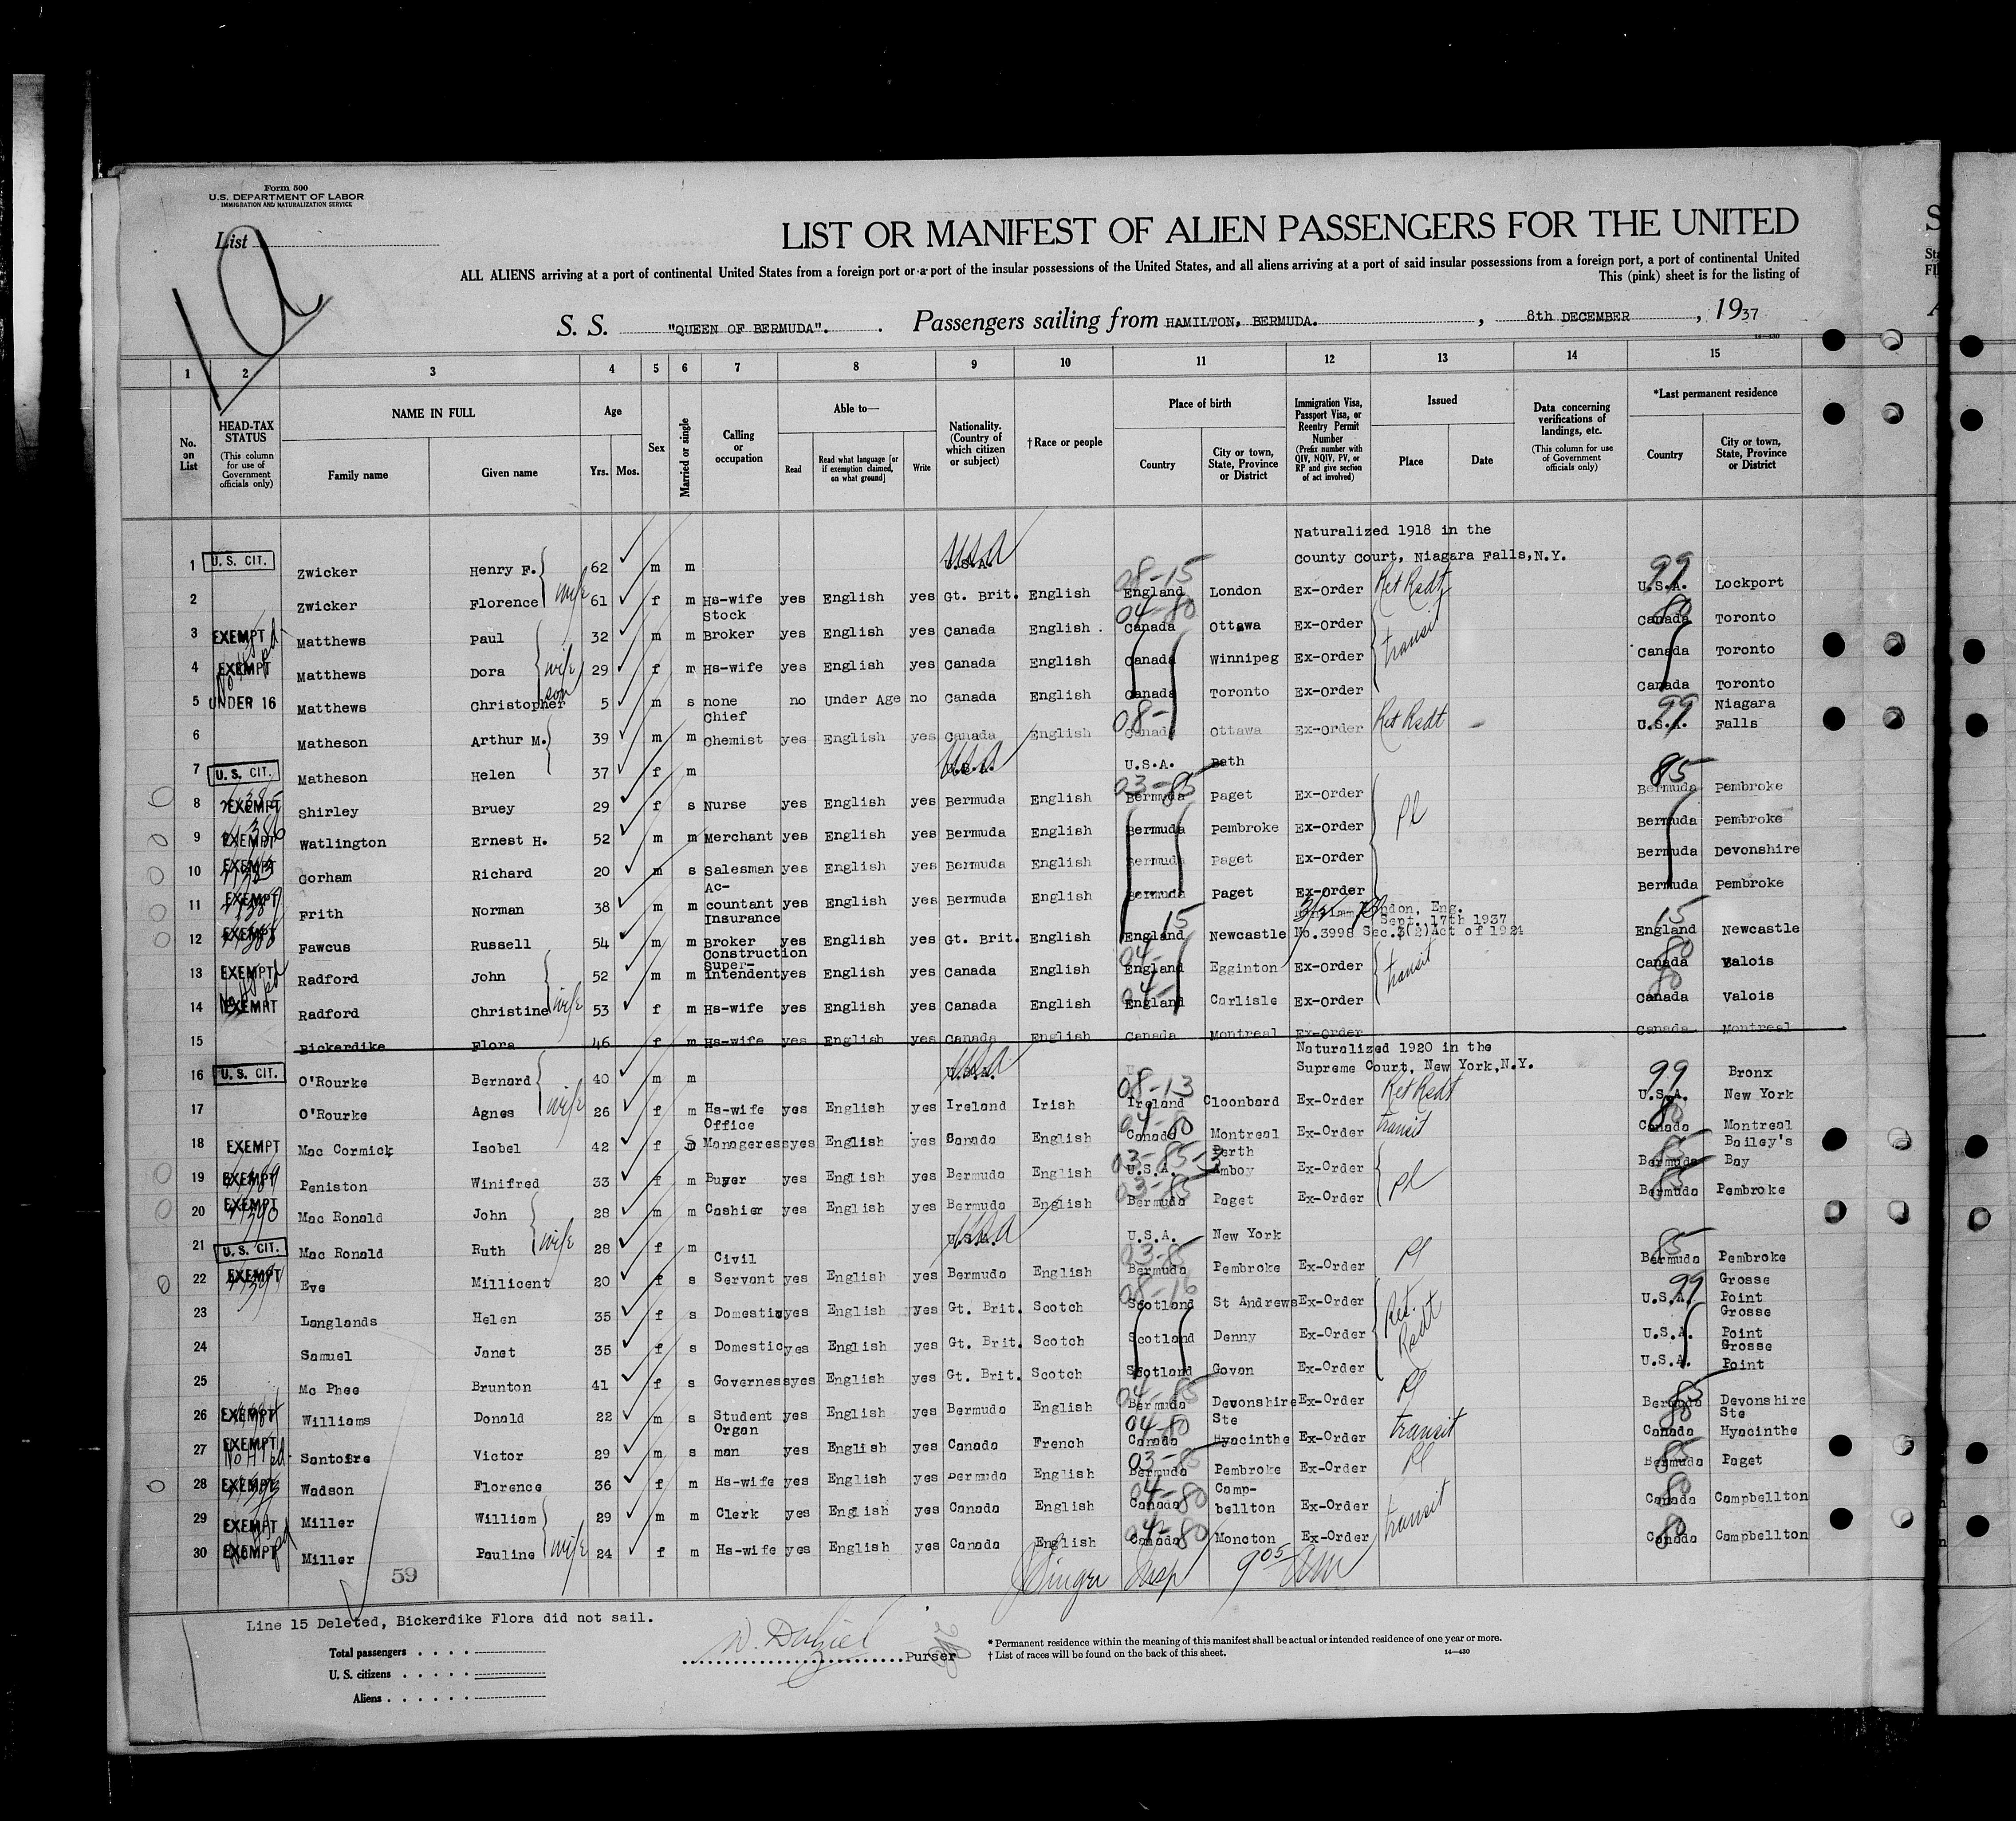 Form 500
U.S. DEPARTMENT OF LABOR
IMMIGRATION AND NATURALIZATION SERVICE
List
LIST OR MANIFEST OF ALIEN PASSENGERS FOR THE UNITED
ALL ALIENS arriving at a port of continental United States from a foreign port or a port of the insular possessions of the United States, and all aliens arriving at a port of said insular possessions from a foreign port, a port of continental United
This (pink) sheet is for the listing of
S. S. "QUEEN OF BERMUDA". Passengers sailing from HAMILTON, BERMUDA. , 8th DECEMBER , 1937
14—430
1 2 3 4 5 6 7 8 9 10 11 12 13 14 15
No. on List
HEAD-TAX STATUS (This column for use of Government officials only)
NAME IN FULL
Family name Given name
Age
Yrs. Mos.
Sex
Married or single
Calling or occupation
Able to—
Read Read what language [or if exemption claimed, on what ground] Write
Nationality. (Country of which citizen or subject)
† Race or people
Place of birth
Country City or town, State, Province or District
Immigration Visa, Passport Visa, or Reentry Permit Number (Prefix number with QIV, NQIV, PV, or RP and give section of act involved)
Issued
Place Date
Data concerning verifications of landings, etc. (This column for use of Government officials only)
*Last permanent residence
Country City or town, State, Province or District
Naturalized 1918 in the
County Court, Niagara Falls,N.Y.
1 U. S. CIT. Zwicker Henry F. 62 m m U.S.A.
2 Zwicker Florence wife 61 f m Hs-wife yes English yes Gt. Brit. English 08-15 England London Ex-Order Ret Rsdt 99 U.S.A. Lockport
3 EXEMPT Matthews Paul 32 m m Stock Broker yes English yes Canada English 04-80 Canada Ottawa Ex-Order transit 80 Canada Toronto
4 EXEMPT Matthews Dora wife 29 f m Hs-wife yes English yes Canada English Canada Winnipeg Ex-Order Canada Toronto
5 UNDER 16 Matthews Christopher son 5 m s none no Under Age no Canada English Canada Toronto Ex-Order Canada Toronto
6 Matheson Arthur M. 39 m m Chief Chemist yes English yes Canada English 08- Canada Ottawa Ex-Order Ret Rsdt 99 U.S.A. Niagara Falls
7 U. S. CIT. Matheson Helen 37 f m U.S.A. U.S.A. Bath
8 EXEMPT Shirley Bruey 29 f s Nurse yes English yes Bermuda English 03-85 Bermuda Paget Ex-Order 85 Bermuda Pembroke
9 EXEMPT Watlington Ernest H. 52 m m Merchant yes English yes Bermuda English Bermuda Pembroke Ex-Order Pl Bermuda Pembroke
10 EXEMPT Gorham Richard 20 m s Salesman yes English yes Bermuda English Bermuda Paget Ex-Order Bermuda Devonshire
11 EXEMPT Frith Norman 38 m m Ac-countant yes English yes Bermuda English Bermuda Paget Ex-Order Bermuda Pembroke
London, Eng.
Sept. 17th 1937
12 EXEMPT Fawcus Russell 54 m m Insurance Broker yes English yes Gt. Brit. English 15 England Newcastle No.3998 Sec.3(2)Act of 1924 15 England Newcastle
13 EXEMPT Radford John 52 m m Construction Super-intendent yes English yes Canada English 04- England Egginton Ex-Order transit 80 Canada Valois
14 EXEMPT Radford Christine wife 53 f m Hs-wife yes English yes Canada English 04- England Carlisle Ex-Order 80 Canada Valois
15 Bickerdike Flora 46 f m Hs-wife yes English yes Canada English Canada Montreal Ex-Order Canada Montreal
Naturalized 1920 in the
Supreme Court, New York,N.Y.
16 U. S. CIT. O'Rourke Bernard 40 m m U.S.A. 99 Bronx
17 O'Rourke Agnes wife 26 f m Hs-wife yes English yes Ireland Irish 08-13 Ireland Cloonbard Ex-Order Ret Rsdt U.S.A. New York
18 EXEMPT Mac Cormick Isobel 42 f s Office Manageress yes English yes Canada English 04-80 Canada Montreal Ex-Order transit 80 Canada Montreal
19 EXEMPT Peniston Winifred 33 f m Buyer yes English yes Bermuda English 03-85-3 U.S.A. Perth Amboy Ex-Order Pl 85 Bermuda Bailey's Bay
20 EXEMPT Mac Ronald John 28 m m Cashier yes English yes Bermuda English 03-85 Bermuda Paget Ex-Order 85 Bermuda Pembroke
21 U. S. CIT. Mac Ronald Ruth wife 28 f m U.S.A. U.S.A. New York
22 EXEMPT Eve Millicent 20 f s Civil Servant yes English yes Bermuda English 03-85 Bermuda Pembroke Ex-Order Pl 85 Bermuda Pembroke
23 Langlands Helen 35 f s Domestic yes English yes Gt. Brit. Scotch 08-16 Scotland St Andrews Ex-Order Ret. Rsdt 99 U.S.A. Grosse Point
24 Samuel Janet 35 f s Domestic yes English yes Gt. Brit. Scotch Scotland Denny Ex-Order U.S.A. Grosse Point
25 Mc Phee Brunton 41 f s Governess yes English yes Gt. Brit. Scotch Scotland Govan Ex-Order U.S.A. Grosse Point
26 EXEMPT Williams Donald 22 m s Student yes English yes Bermuda English 04-85 Bermuda Devonshire Ex-Order Pl 85 Bermuda Devonshire
27 EXEMPT Santoire Victor 29 m s Organ man yes English yes Canada French 04-80 Canada Ste Hyacinthe Ex-Order transit 80 Canada Ste Hyacinthe
28 EXEMPT Wadson Florence 36 f m Hs-wife yes English yes Bermuda English 03-85 Bermuda Pembroke Ex-Order Pl 85 Bermuda Paget
29 EXEMPT Miller William 29 m m Clerk yes English yes Canada English 04-80 Canada Camp-bellton Ex-Order transit 80 Canada Campbellton
30 EXEMPT Miller Pauline wife 24 f m Hs-wife yes English yes Canada English 04-80 Canada Moncton Ex-Order 80 Canada Campbellton
59
Singer Insp 9 05 am
Line 15 Deleted, Bickerdike Flora did not sail.
Total passengers
U. S. citizens
Aliens
W. Dalziel
Purser
* Permanent residence within the meaning of this manifest shall be actual or intended residence of one year or more.
† List of races will be found on the back of this sheet.
14—430